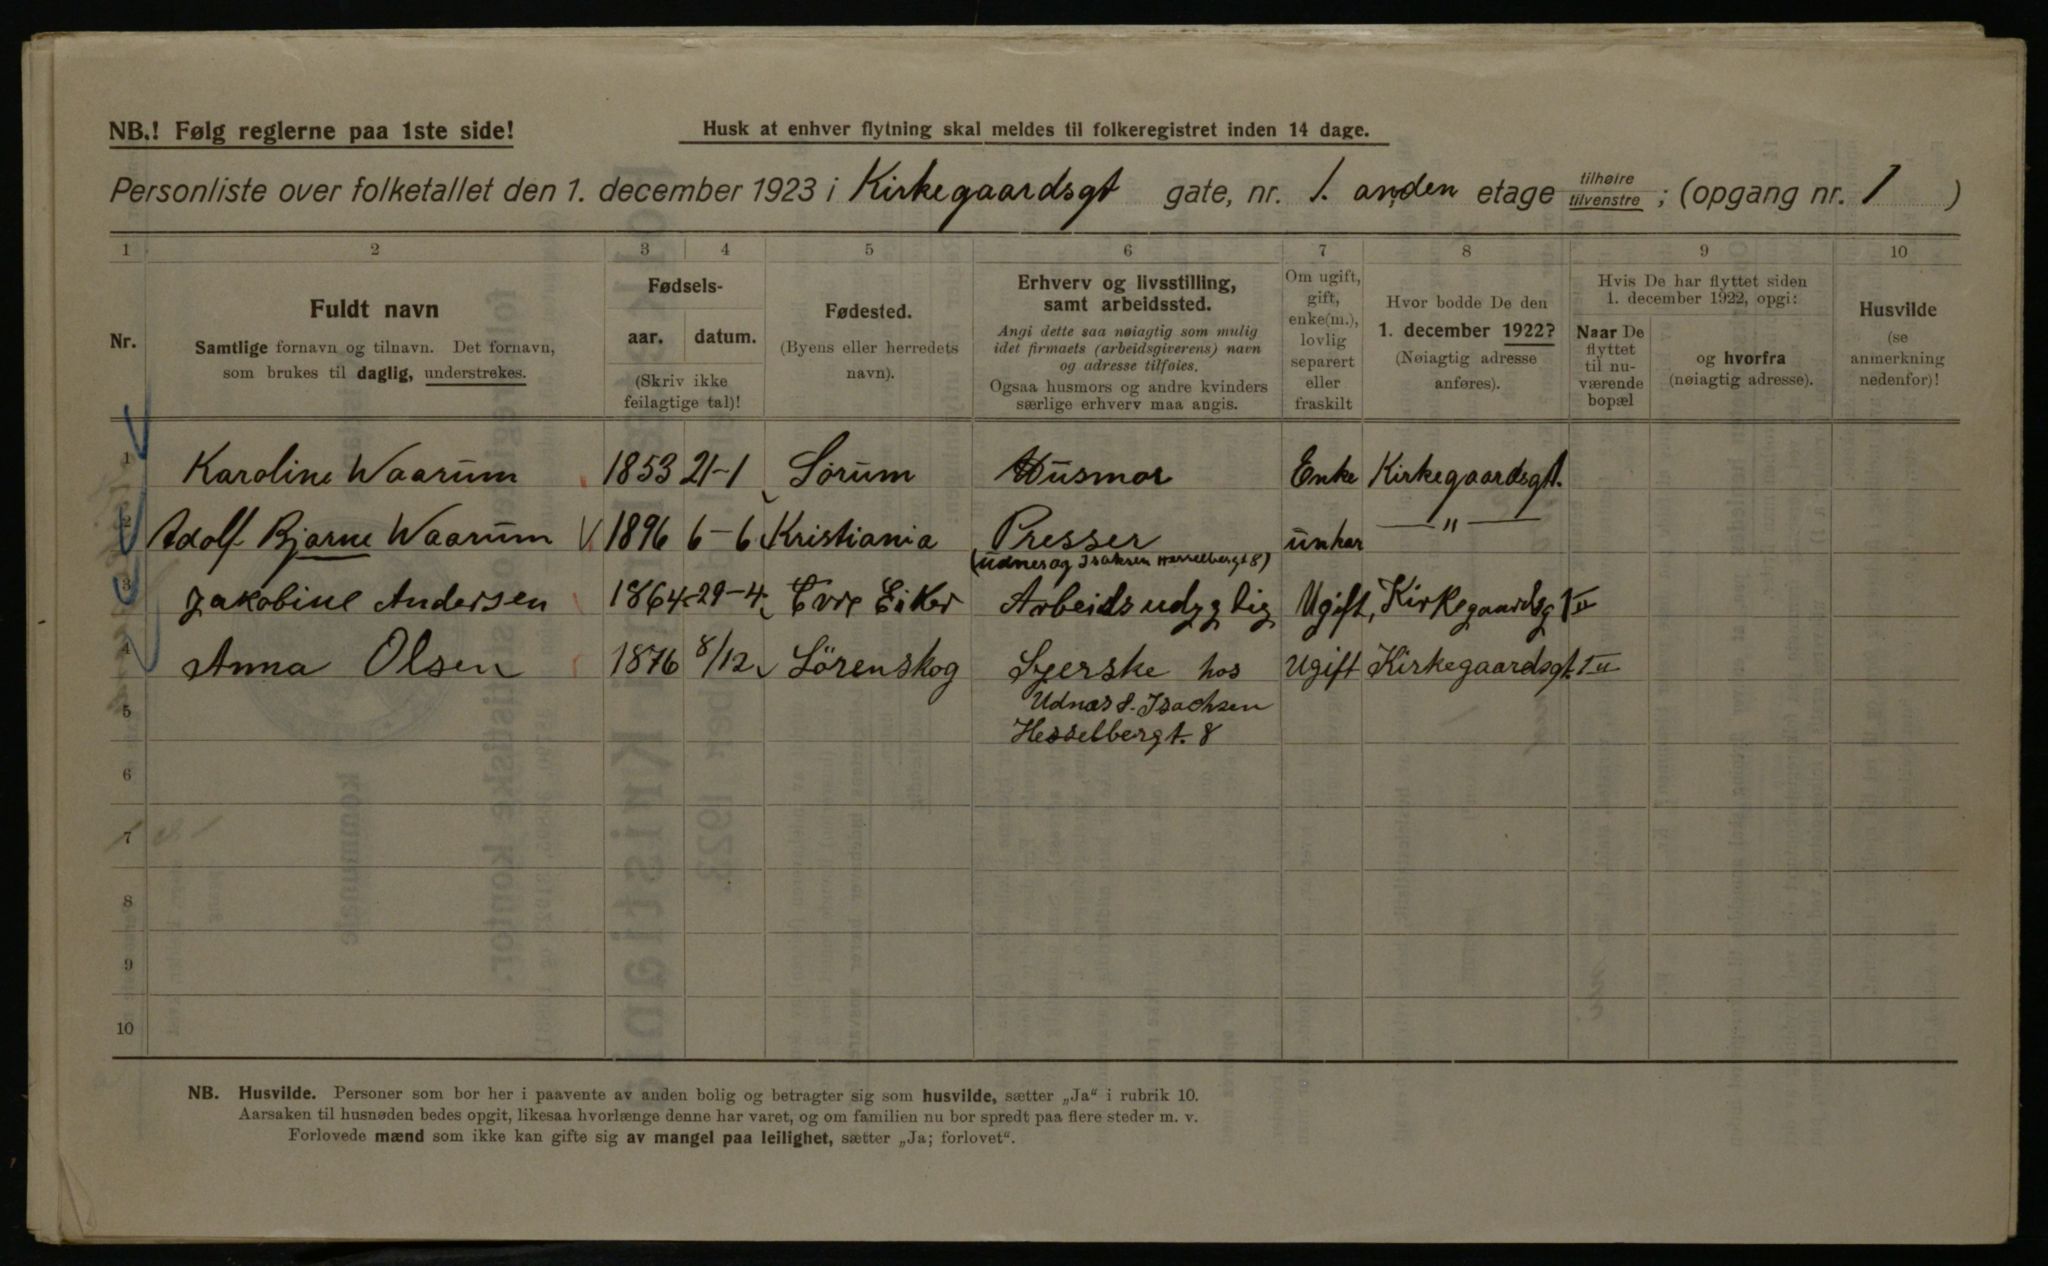 NB.! Følg reglerne paa 1ste side!
Husk at enhver flytning skal meldes til folkeregistret inden 14 dage.
Personliste over folketallet den 1. december 1923 i Kirkegaardsgt gate, nr. 1. anden etage tilhøire tilvenstre ; (opgang nr. 1 )
1 2 3 4 5 6 7 8 9 10
Nr.
Fuldt navn
Samtlige fornavn og tilnavn. Det fornavn,
som brukes til daglig, understrekes.
Fødsels-
aar. datum.
(Skriv ikke
feilagtige tal)!
Fødested.
(Byens eller herredets
navn).
Erhverv og livsstilling,
samt arbeidssted.
Angi dette saa nøiagtig som mulig
idet firmaets (arbeidsgiverens) navn
og adresse tilføies.
Ogsaa husmors og andre kvinders
særlige erhverv maa angis.
Om ugift,
gift,
enke(m.),
lovlig
separert
eller
fraskilt
Hvor bodde De den
1. december 1922?
(Nøiagtig adresse
anføres).
Hvis De har flyttet siden
1. december 1922, opgi:
Naar De
flyttet
til nu-
værende
bopæl
og hvorfra
(nøiagtig adresse).
Husvilde
(se
anmerkning
nedenfor)!
1 Karoline Waarum 1853 21-1 Sørum Husmor Enke Kirkegaardsgt.
2 Adolf Bjarne Waarum 1896 6-6 Kristiania Presser unkar — " —
(Udnes og Isaksen Hesselbergt 8)
3 Jakobine Andersen 1864 29-4 Øvre Eiker Arbeidsudygtig Ugift, Kirkegaardsg 1 II
4 Anna Olsen 1876 8/12 Lörenskog Syerske hos Ugift Kirkegaardsgt. 1 II
Udnæs & Isachsen
5
Hesselbergt. 8
6
7
8
9
10
NB. Husvilde. Personer som bor her i paavente av anden bolig og betragter sig som husvilde, sætter „Ja“ i rubrik 10.
Aarsaken til husnøden bedes opgit, likesaa hvorlænge denne har varet, og om familien nu bor spredt paa flere steder m. v.
Forlovede mænd som ikke kan gifte sig av mangel paa leilighet, sætter „Ja; forlovet“.